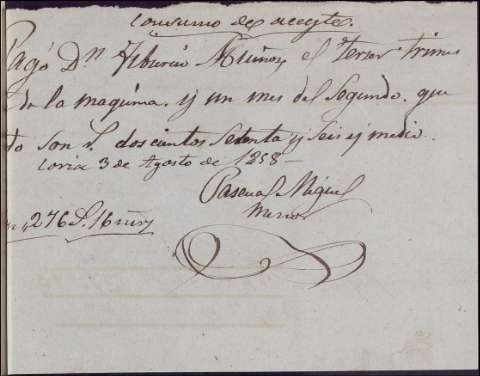 Consumo de aceyte.
Pagó Dn Tiburcio Muñoz el tercer trimes
de la maquina y un mes del segundo que
to son rs doscientos setenta y seis y medio
Coria 3 de Agosto de 1858
Pascual Miguel
Merino
276 rs 16 mrs